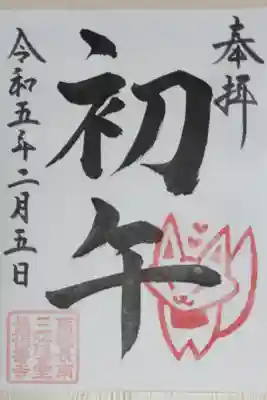 奉拝
初午
令和五年二月五日